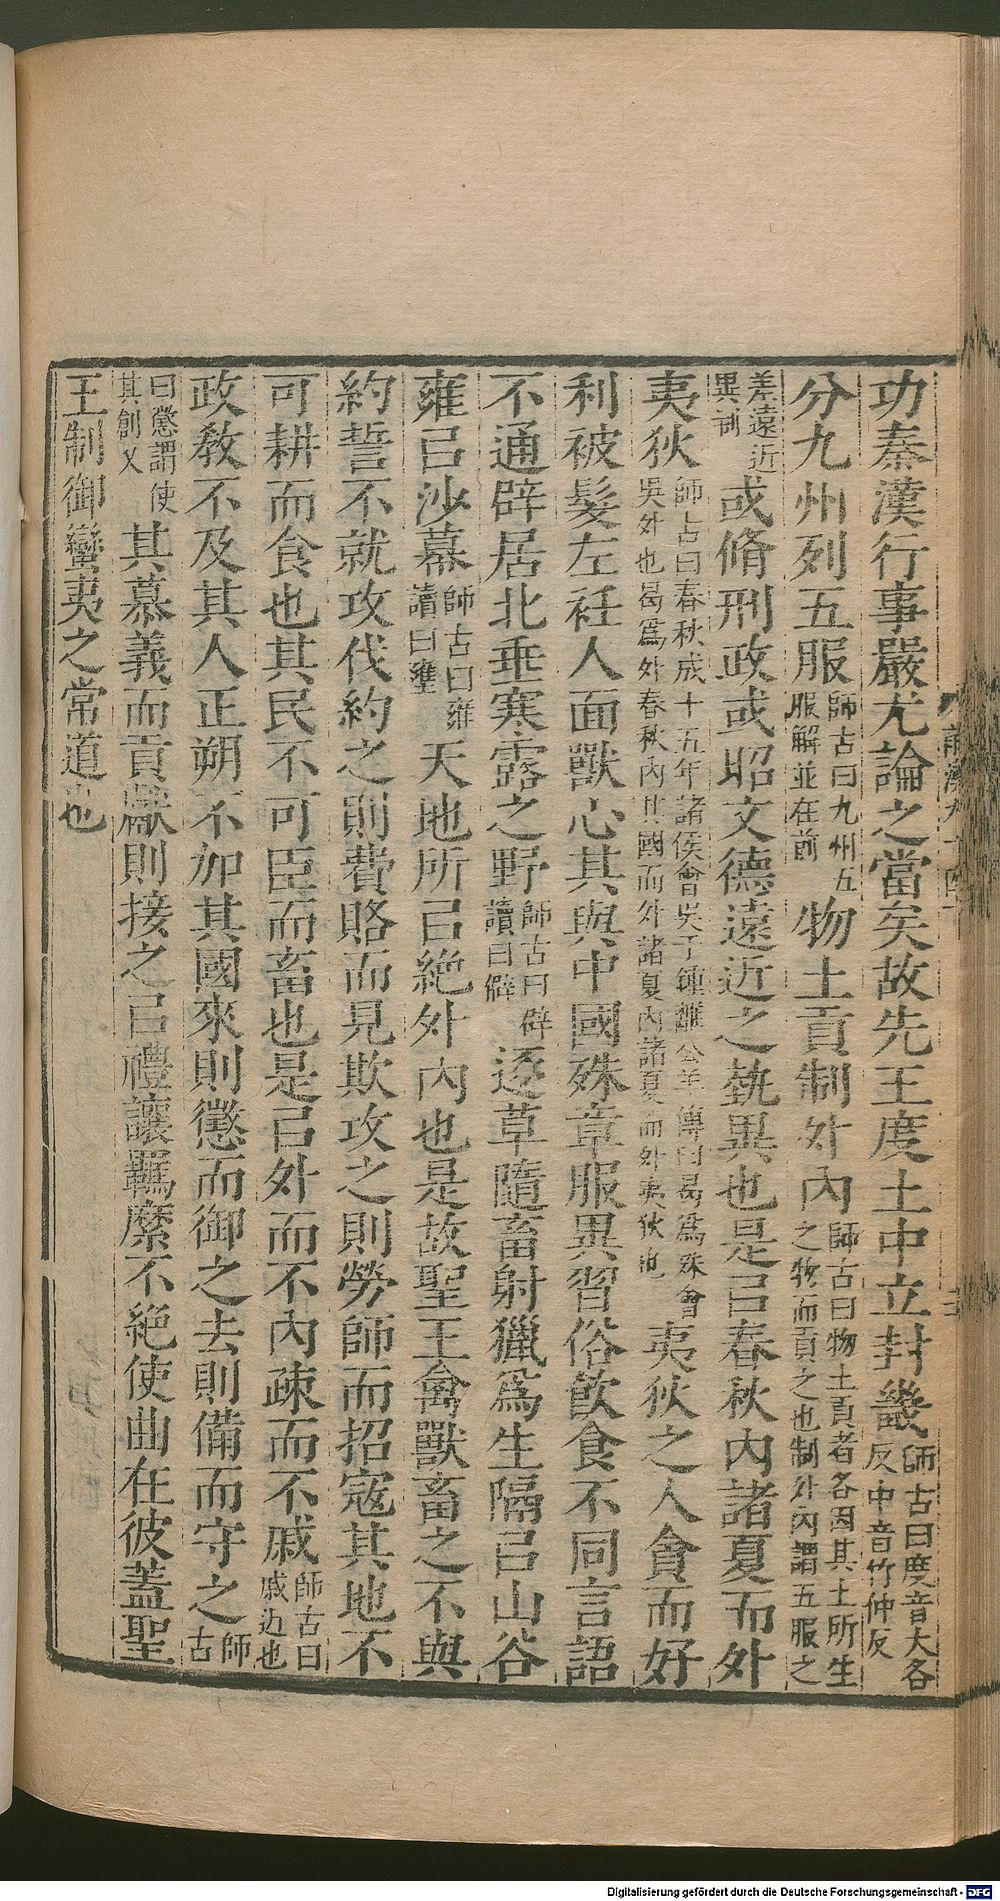 功秦漢行事嚴尤論之當矣故先王度土中立封畿師古曰度音大各反中音竹仲反
分九州列五服師古曰九州五服解並在前物土貢制外內師古曰物土貢者各因其土所生之物而貢之也制外內謂五服之
差遠近異制或脩刑政或昭文德遠近之埶異也是㠯春秋內諸夏而外
夷狄師古曰春秋成十五年諸侯會吳于鍾離公羊傳曰曷爲殊會吳外也曷爲外春秋內其國而外諸夏內諸夏而外夷狄也夷狄之人貪而好
利被髮左衽人面獸心其與中國殊章服異習俗飲食不同言語
不通辟居北垂寒露之野師古曰辟讀曰僻逐草隨畜射獵爲生隔㠯山谷
雍㠯沙幕師古曰雍讀曰壅天地所㠯絶外內也是故聖王禽獸畜之不與
約誓不就攻伐約之則費賂而見欺攻之則勞師而招寇其地不
可耕而食也其民不可臣而畜也是㠯外而不內疎而不戚師古曰戚近也
政教不及其人正朔不加其國來則懲而御之去則備而守之師古
曰懲謂使其創乂其慕義而貢獻則接之㠯禮讓羈縻不絶使曲在彼蓋聖
王制御蠻夷之常道也
前漢九十四下
Digitalisierung gefördert durch die Deutsche Forschungsgemeinschaft - DFG